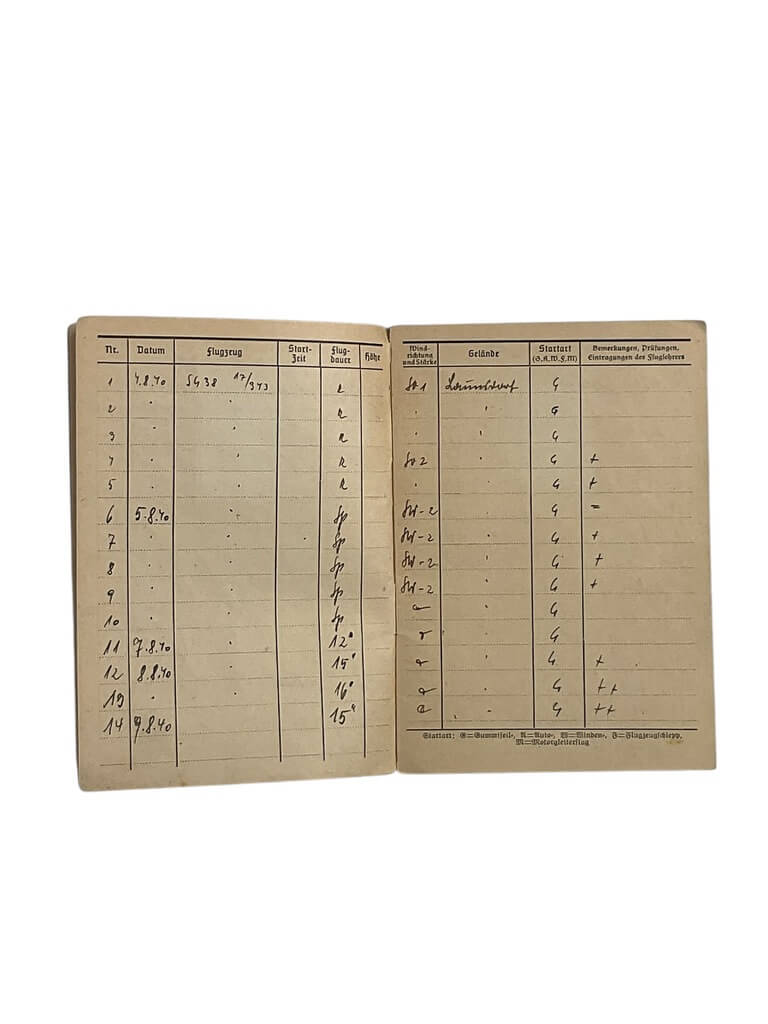 Nr. Datum Flugzeug Start-Zeit Flug-dauer Höhe Wind-richtung und Stärke Gelände Startart (G.A.W.F.M) Bemerkungen, Prüfungen, Eintragungen des Fluglehrers
1 4.8.40 SG 38 17/343 R SO 1 Launsdorf G
2 " " R " " G
3 " " R " " G
4 " " R SO 2 " G +
5 " " R " " G +
6 5.8.40 " Sp SW-2 " G =
7 " " Sp SW-2 " G +
8 " " Sp SW-2 " G +
9 " " Sp SW-2 " G +
10 " " Sp " G
11 7.8.40 " 12" " G
12 8.8.40 " 15" " G +
13 " " 16" " G ++
14 9.8.40 15" " G ++
Startart: G=Gummiseil-, A=Auto-, W=Winden-, F=Flugzeugschlepp,
M=Motorgleiterflug